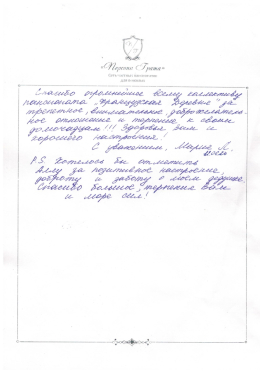 Спасибо огромнейшее всему коллективу
пансионата "Французская деревня" за
трепетное, внимательное, доброжелатель-
ное отношение и терпение к своим
домочадцам!!! Здоровья вам и
хорошего настроения!
С уважением, Мария Л.
P.S. Хотелось бы отметить
Аллу за позитивное настроение,
доброту и заботу о моём дедушке.
Спасибо большое, терпения вам
и море сил!